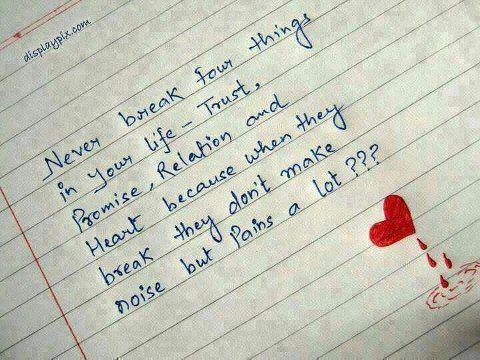 displaypix.com
Never break four things
in your life - Trust,
Promise, Relation and
Heart because when they
break they don't make
noise but Pains a lot???